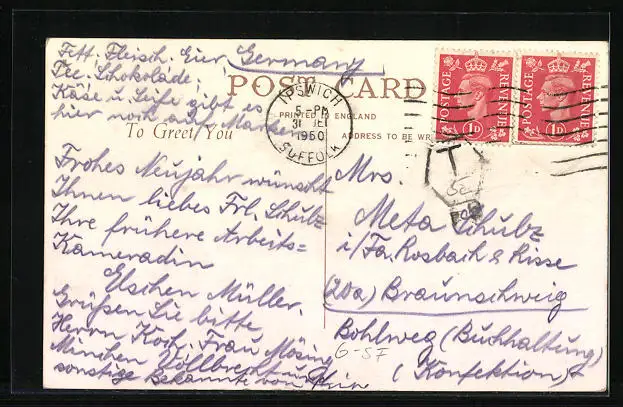 Fett, Fleisch, Eier,
Tee, Schokolade,
Käse u. Seife gibt es
hier noch auf Marken
Germany
POST CARD
PRINTED IN ENGLAND
To Greet You
ADDRESS TO BE WR
IPSWICH
5-PM
31 DE
1950
SUFFOLK
POSTAGE REVENUE
1D
POSTAGE REVENUE
1D
T
Frohes Neujahr wünscht
Ihnen liebes Frl. Schulz
Ihre frühere Arbeits=
Kameradin
Elschen Müller.
Grüßen Sie bitte
Herrn Koch, Frau Mösing
Minchen Vollbrecht und
sonstige Bekannte von mir
Mrs.
Meta Schulz
i/Fa. Rosbach & Risse
(20a) Braunschweig
Bohlweg (Buchhaltung)
6-57
(Konfektion)